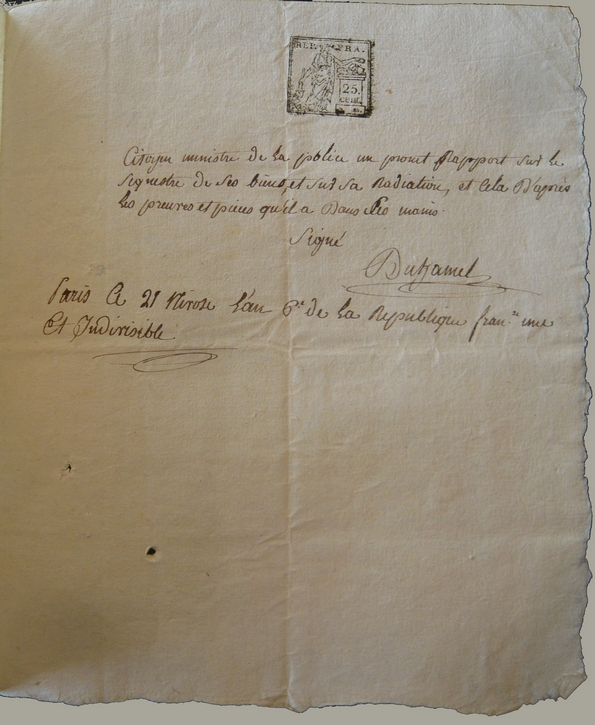 RÉP. FRA.
25.
cent.
Citoyen ministre de la police un promt Rapport sur le
Sequestre de ses biens, et sur sa Radiation, et cela D'après
les preuves et pieces qu'il a Dans Les mains
Signé
Duhamel
Paris Ce 21 Nivose L'an 6e. de la Republique fran.se une
Et Indivisible